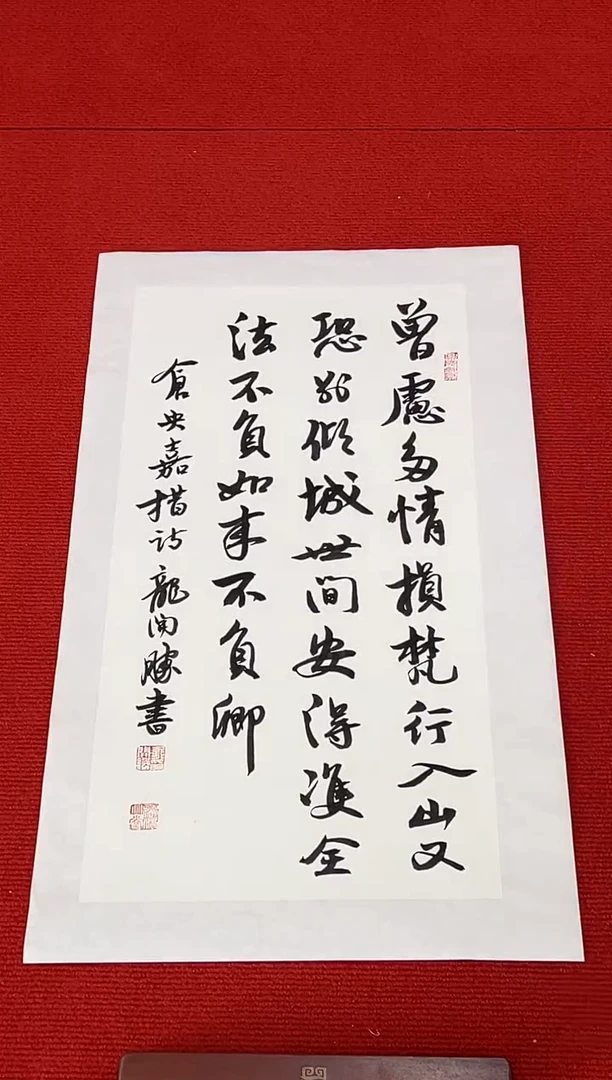 曾慮多情損梵行入山又
恐別傾城世間安得雙全
法不負如来不負卿
倉央嘉措詩龍開勝書